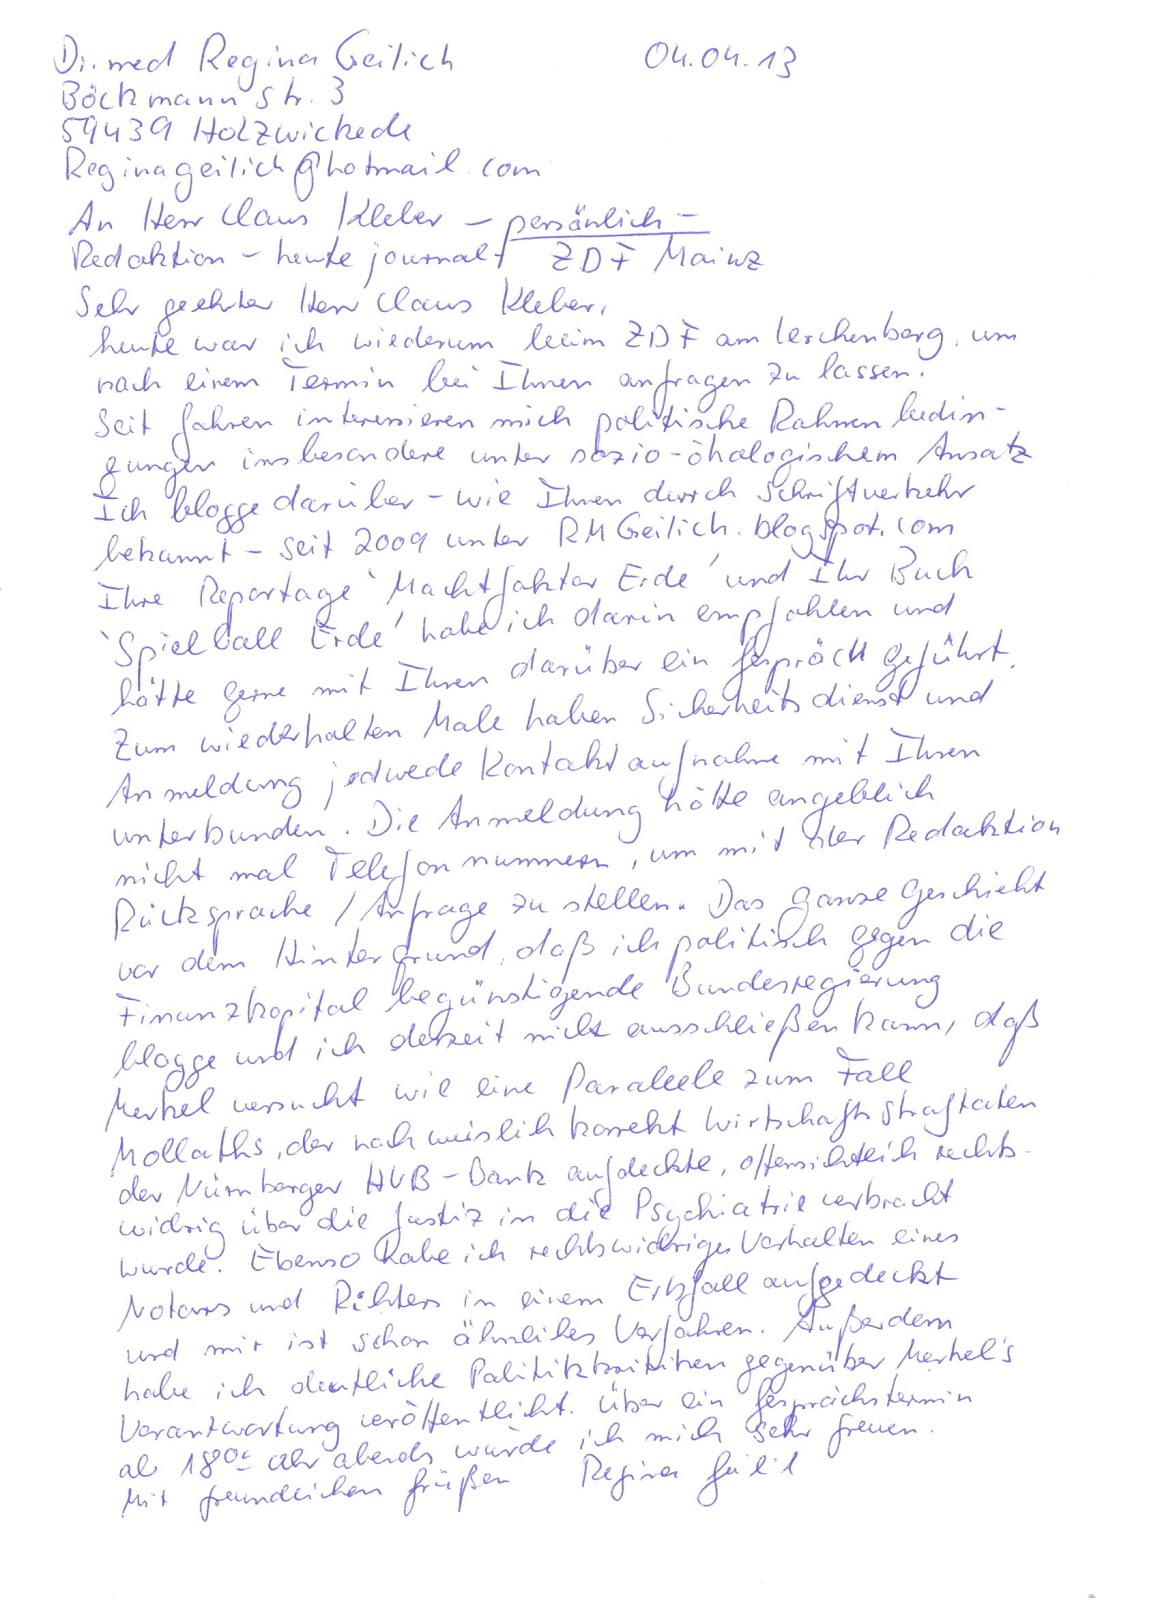 Dr. med Regina Geilich 04.04.13
Böckmann Str. 3
59439 Holzwickede
Reginageilich@hotmail.com
An Herr Claus Kleber – persönlich –
Redaktion – heute journal ZDF Mainz
Sehr geehrter Herr Claus Kleber,
heute war ich wiederum beim ZDF am Lerchenberg, um
nach einem Termin bei Ihnen anfragen zu lassen.
Seit Jahren interessieren mich politische Rahmenbedin-
gungen insbesondere unter sozio-ökologischem Ansatz
Ich blogge darüber – wie Ihnen durch Schriftverkehr
bekannt – seit 2009 unter RMGeilich.blogspot.com
Ihre Reportage 'Machtfaktor Erde' und Ihr Buch
'Spielball Erde' habe ich darin empfohlen und
hätte gerne mit Ihnen darüber ein Gespräch geführt.
Zum wiederholten Male haben Sicherheitsdienst und
Anmeldung jedwede Kontaktaufnahme mit Ihnen
unterbunden. Die Anmeldung hätte angeblich
nicht mal Telefonnummern, um mit der Redaktion
Rücksprache / Anfrage zu stellen. Das ganze geschieht
vor dem Hintergrund, daß ich politisch gegen die
Finanzkapital begünstigende Bundesregierung
blogge und ich derzeit nicht ausschließen kann, daß
Merkel versucht wie eine Parallele zum Fall
Mollaths, der nachweislich korrekt Wirtschaftsstraftaten
der Nürnberger HVB-Bank aufdeckte, offensichtlich rechts-
widrig über die Justiz in die Psychiatrie verbracht
wurde. Ebenso habe ich rechtswidriges Verhalten eines
Notars und Richters in einem Erbfall aufgedeckt
und mir ist schon ähnliches Verfahren. Außerdem
habe ich deutliche Politikkritiken gegenüber Merkel's
Verantwortung veröffentlicht. Über ein Gesprächstermin
ab 18°° Uhr abends würde ich mich sehr freuen.
Mit freundlichen Grüßen Regina Geilich